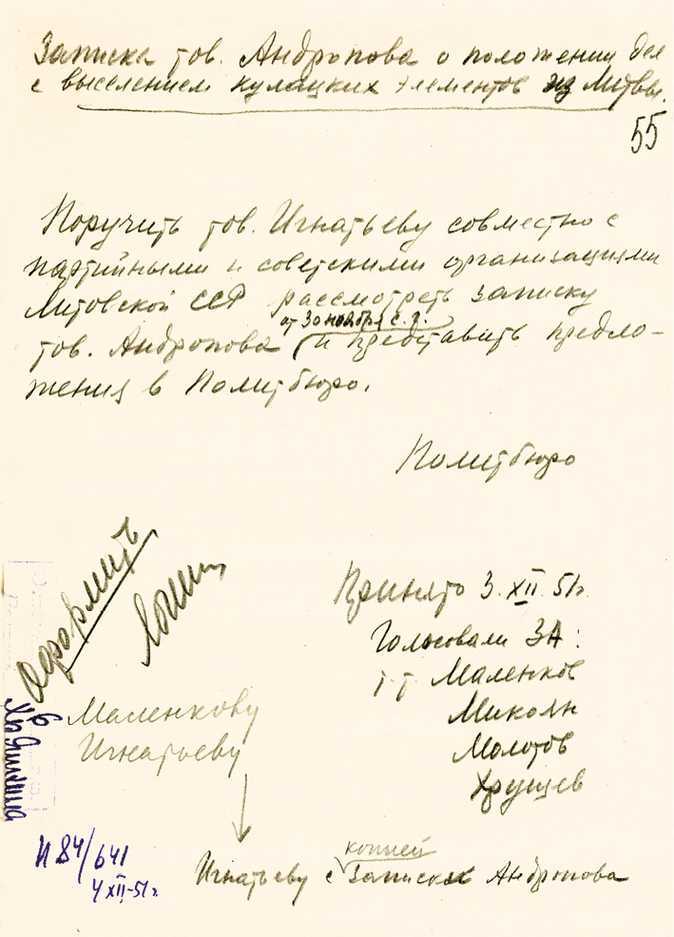 Записка тов. Андропова о положении дел
с выселением кулацких элементов из Литвы.
55
Поручить тов. Игнатьеву совместно с
партийными и советскими организациями
Литовской ССР рассмотреть записку
от 30 ноября с.г.
тов. Андропова и представить предло-
жения в Политбюро.
Политбюро
Оформить
Принято 3.XII.51г.
Голосовали ЗА:
т.т. Маленков
Микоян
Молотов
Хрущев
Маленкову
Игнатьеву
П 84/641
4 XII-51г.
копией
Игнатьеву с записки Андропова